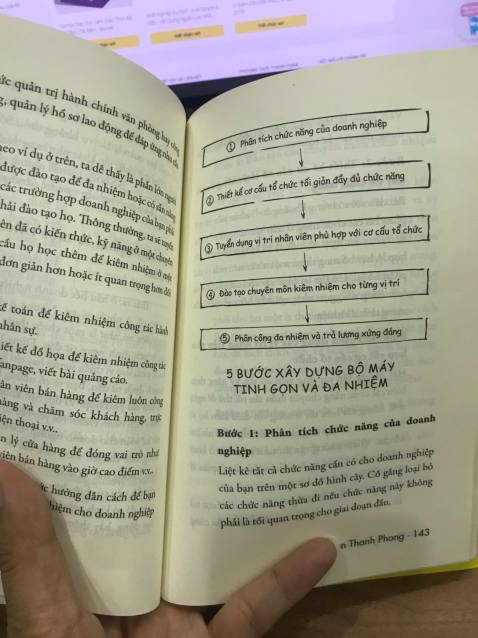 ức quản trị hành chính văn phòng hay công
g, quản lý hồ sơ lao động để đáp ứng nhu cầu
heo ví dụ ở trên, ta dễ thấy là phần lớn người
được đào tạo để đa nhiệm hoặc có sẵn năng
các trường hợp doanh nghiệp của bạn phải
hải đào tạo họ. Thông thường, ta sẽ tuyển
ên đã có kiến thức, kỹ năng ở một chuyên
cầu họ học thêm để kiêm nhiệm ở một
đơn giản hơn hoặc ít quan trọng hơn đối
kế toán để kiêm nhiệm công tác hành
nhân sự.
iết kế đồ họa để kiêm nhiệm công tác
anpage, viết bài quảng cáo.
ân viên bán hàng để kiêm luôn công
hàng và chăm sóc khách hàng, trực
iện thoại v.v..
n lý cửa hàng để đóng vai trò như
viên bán hàng vào giờ cao điểm v.v..
hướng dẫn cách để bạn
hiệm cho doanh nghiệp
① Phân tích chức năng của doanh nghiệp
② Thiết kế cơ cấu tổ chức tối giản đầy đủ chức năng
③ Tuyển dụng vị trí nhân viên phù hợp với cơ cấu tổ chức
④ Đào tạo chuyên môn kiêm nhiệm cho từng vị trí
⑤ Phân công đa nhiệm và trả lương xứng đáng
5 BƯỚC XÂY DỰNG BỘ MÁY
TINH GỌN VÀ ĐA NHIỆM
Bước 1: Phân tích chức năng của doanh
nghiệp
Liệt kê tất cả chức năng cần có cho doanh nghiệp
của bạn trên một sơ đồ hình cây. Cố gắng loại bỏ
các chức năng thừa đi nếu chức năng này không
phải là tối quan trọng cho giai đoạn đầu.
n Thanh Phong - 143